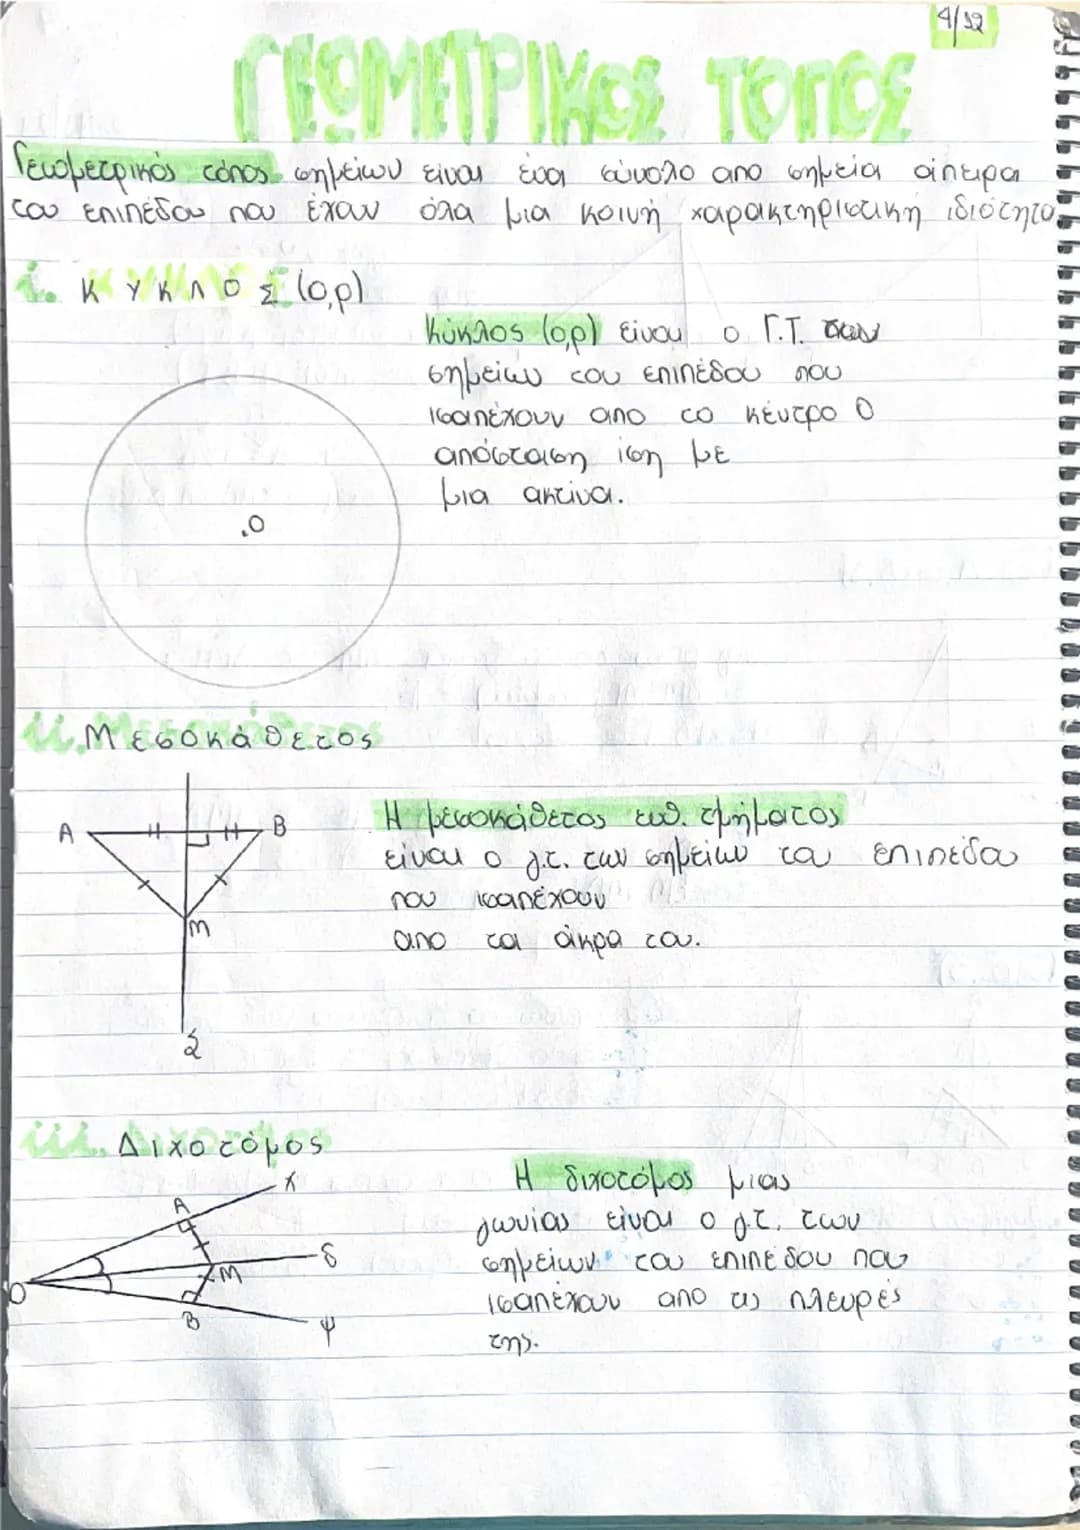 4/12
ΓΕΩΜΕΤΡΙΚΟΣ ΤΟΠΟΣ
Γεωμετρικός τόπος σημείων είναι ένα σύνολο απο σημεία άπειρα
του επιπέδου που έχουν όλα μια κοινή χαρακτηριστική ιδιότητα
i. ΚΥΚΛΟΣ (Ο,ρ)
Κύκλος (Ο,ρ) είναι ο Γ.Τ. των
σημείων του επιπέδου που
ισαπέχουν απο το κέντρο Ο
απόσταση ίση με
μια ακτίνα.
Ο
ii. Μεσοκάθετος
Α Β
Μ
Σ
Η μεσοκάθετος ευθ. τμήματος
είναι ο γ.τ. των σημείων του επιπέδου
που ισαπέχουν
απο τα άκρα του.
iii. Διχοτόμος
Α χ
δ
Ο Μ
Β ψ
Η διχοτόμος μιας
γωνίας είναι ο γ.τ. των
σημείων του επιπέδου που
ισαπέχουν απο τις πλευρές
της.